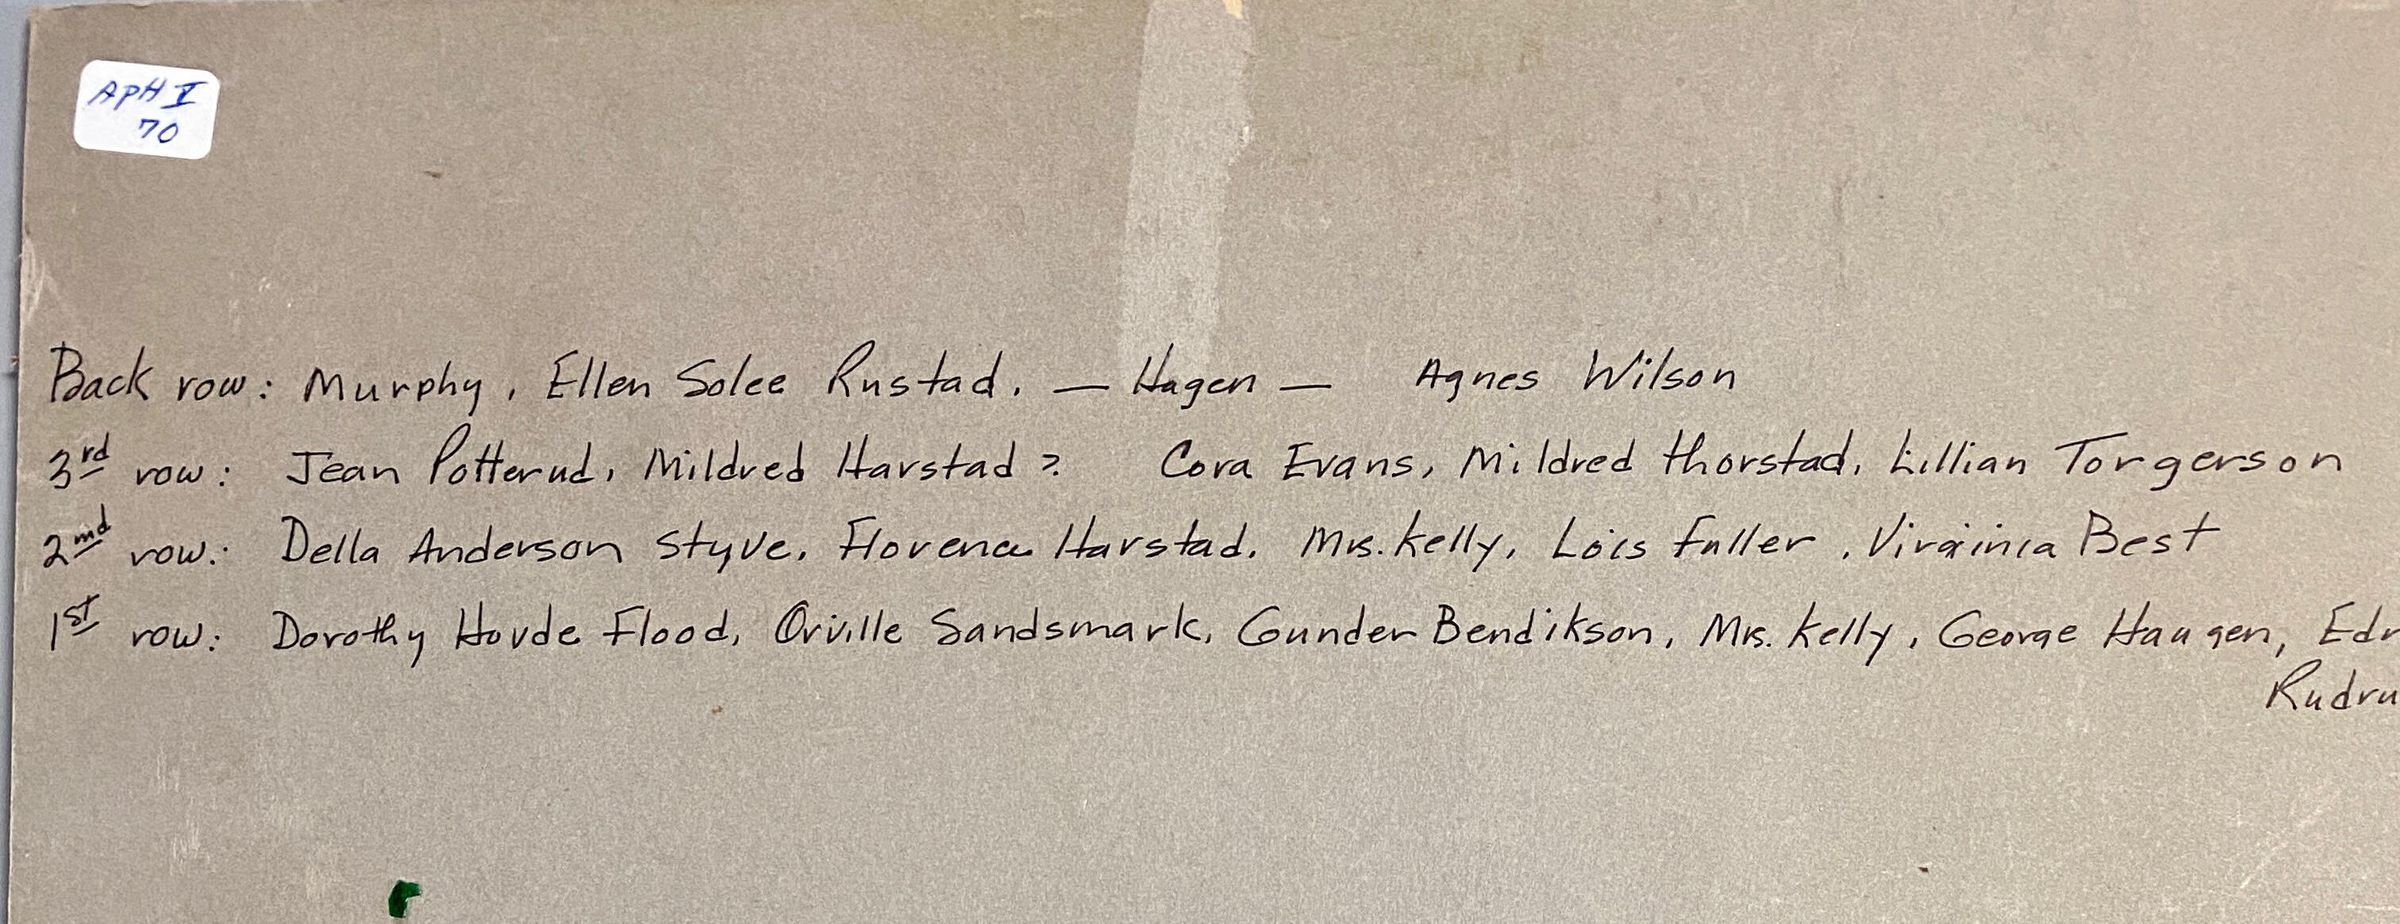 APH V
70
Back row: Murphy, Ellen Solee Rustad, — Hagen — Agnes Wilson
3rd row: Jean Potterud, Mildred Harstad? Cora Evans, Mildred Thorstad, Lillian Torgerson
2nd row: Della Anderson Styve, Florence Harstad, Mrs. Kelly, Lois Fuller, Virginia Best
1st row: Dorothy Hovde Flood, Orville Sandsmark, Gunder Bendikson, Mrs. Kelly, George Haugen,